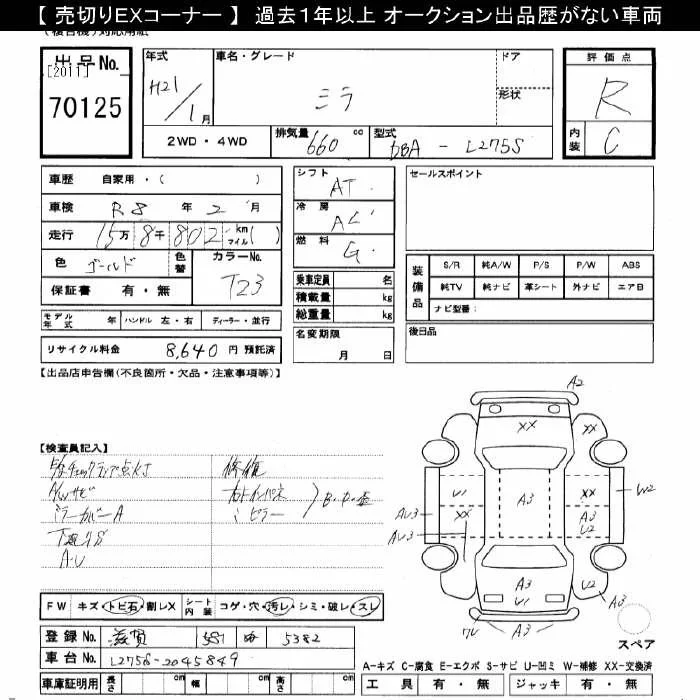 【 売切りEXコーナー 】 過去１年以上 オークション出品歴がない車両
出品No.
[2011]
70125
年式
H21/1月
車名・グレード
ミラ
ドア
形状
2WD・4WD
排気量 660 cc
型式 DBA - L275S
評価点
R
内装
C
車歴 自家用・( )
車検 R8 年 2 月
走行 15万8千802 km マイル( )
色 ゴールド
色替
カラーNo. T23
保証書 有・無
モデル年式 年 ハンドル 左・右 ディーラー・並行
リサイクル料金 8,640 円 預託済
シフト AT
冷房 AC
燃料 G
乗車定員 名
積載量 kg
総重量 kg
名変期限
月 日
セールスポイント
装備品
S/R 純A/W P/S P/W ABS
純TV 純ナビ 革シート 外ナビ エアB
ナビ型番:
後日品
【出品店申告欄(不良箇所・欠品・注意事項等)】
【検査員記入】
修復
A/Wサビ
ミラーカバーA
A・U
ピラー
A2
XX
XX
U1
XX
A3
XX
A3
U2
W2
AU3
AU3
A3
U1
U2
A3
A3
スペア
FW キズ・トビ石・割レX シート内装 コゲ・穴・汚レ・シミ・破レ・スレ
登録No. 滋賀 581 5382
車台No. L275S-2045849
車庫証明用 長さ cm 幅 cm 高さ cm
A-キズ C-腐食 E-エクボ S-サビ U-凹ミ W-補修 XX-交換済
工具 有・無 ジャッキ 有・無